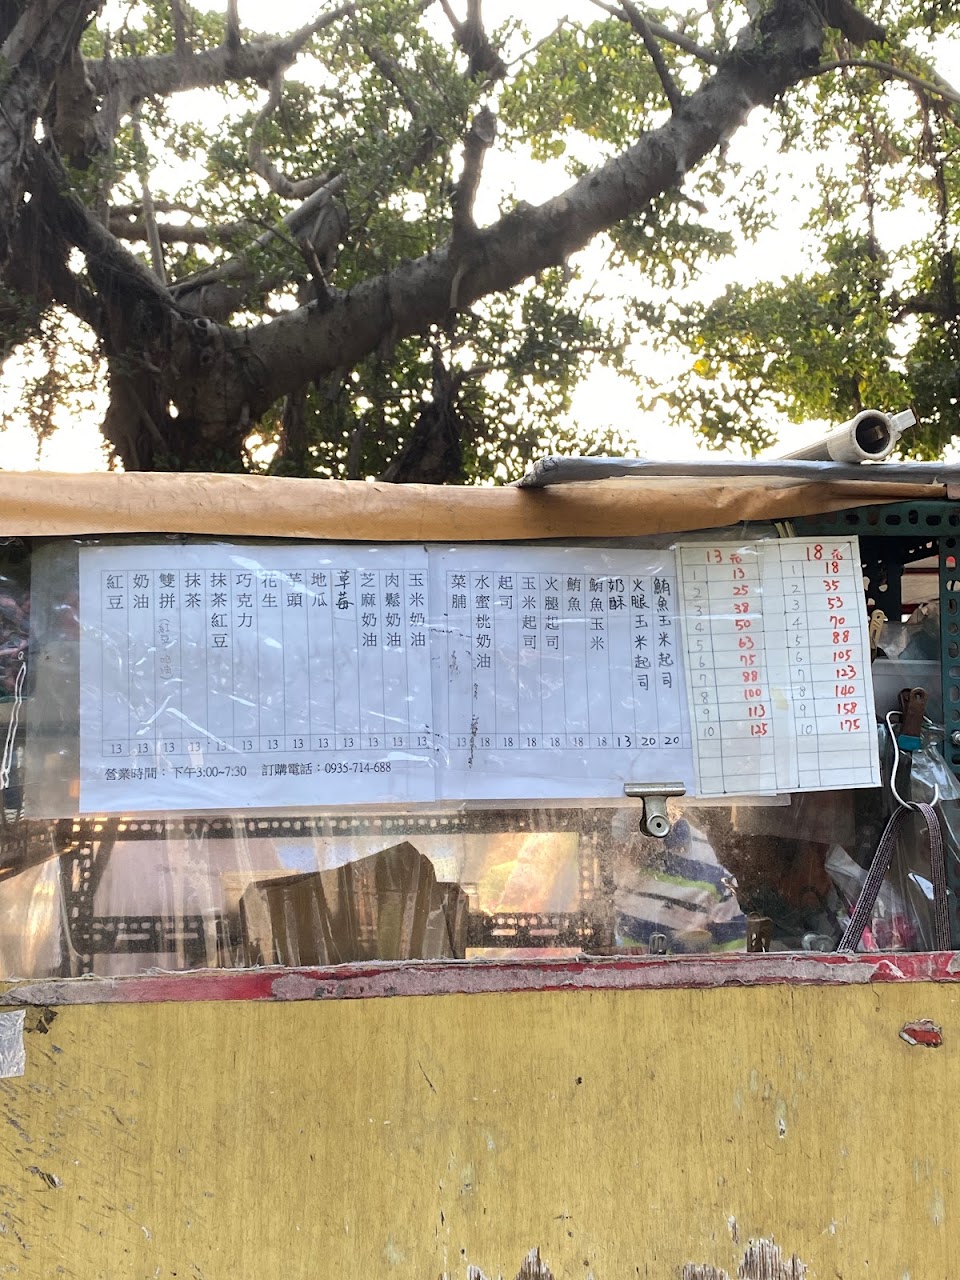 紅豆 13
奶油 13
雙拼(紅豆、奶油) 13
抹茶 13
抹茶紅豆 13
巧克力 13
花生 13
芋頭 13
地瓜 13
草莓 13
芝麻奶油 13
肉鬆奶油 13
玉米奶油 13
菜脯 13
水蜜桃奶油 18
起司 18
玉米起司 18
火腿起司 18
鮪魚 18
鮪魚玉米 18
奶酥 13
火腿玉米起司 20
鮪魚玉米起司 20
營業時間：下午3:00~7:30 訂購電話：0935-714-688
13元
1 13
2 25
3 38
4 50
5 63
6 75
7 88
8 100
9 113
10 125
18元
1 18
2 35
3 53
4 70
5 88
6 105
7 123
8 140
9 158
10 175